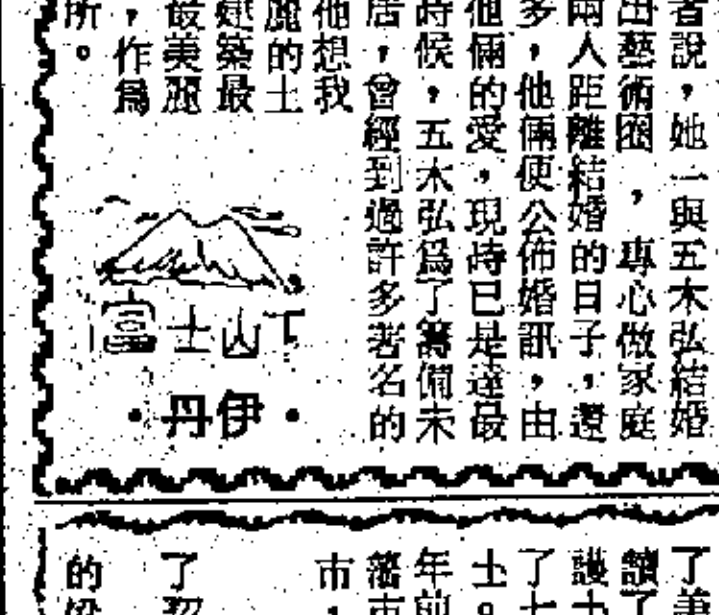 者說，她一與五木弘結婚
出藝術圈，專心做家庭
兩人距離結婚的日子，還
多，他倆便公佈婚訊，由
他倆的愛，現時已是達最
時候，五木弘爲了籌備未
居，曾經到過許多著名的
他想我
麗的土
建築最
最美麗
，作爲
所。
富士山下
・伊丹・
了美
讀了
護士
了七
士。
年前
藩市
市，
了
的